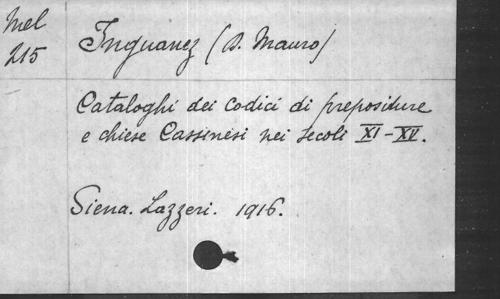 Mel
215
Inguanez (D. Mauro)
Cataloghi dei codici di prepositure
e chiese Cassinesi nei secoli XI-XV.
Siena. Lazzeri. 1916.